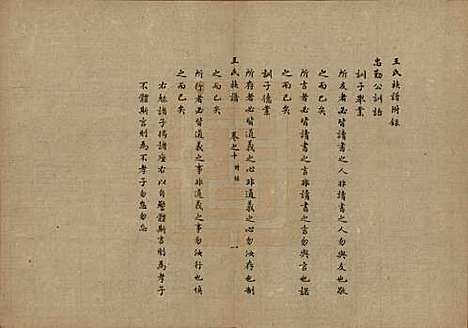 王氏族譜附錄
忠勤公訓語
訓子舉業
所友者必皆讀書之人非讀書之人勿與友也敬
之而已矣
所言者必皆讀書之言非讀書之言勿與言也謹
之而已矣
訓子德業
所存者必皆道義之心非道義之心勿汝存也制
王氏族譜 卷之十 附錄 一
之而已矣
所行者必皆道義之事非道義之事勿汝行也慎
之而已矣
右魁諸子揭諸座右以自警體斯言則為孝子
不體斯言則為不孝子勿怠勿忽